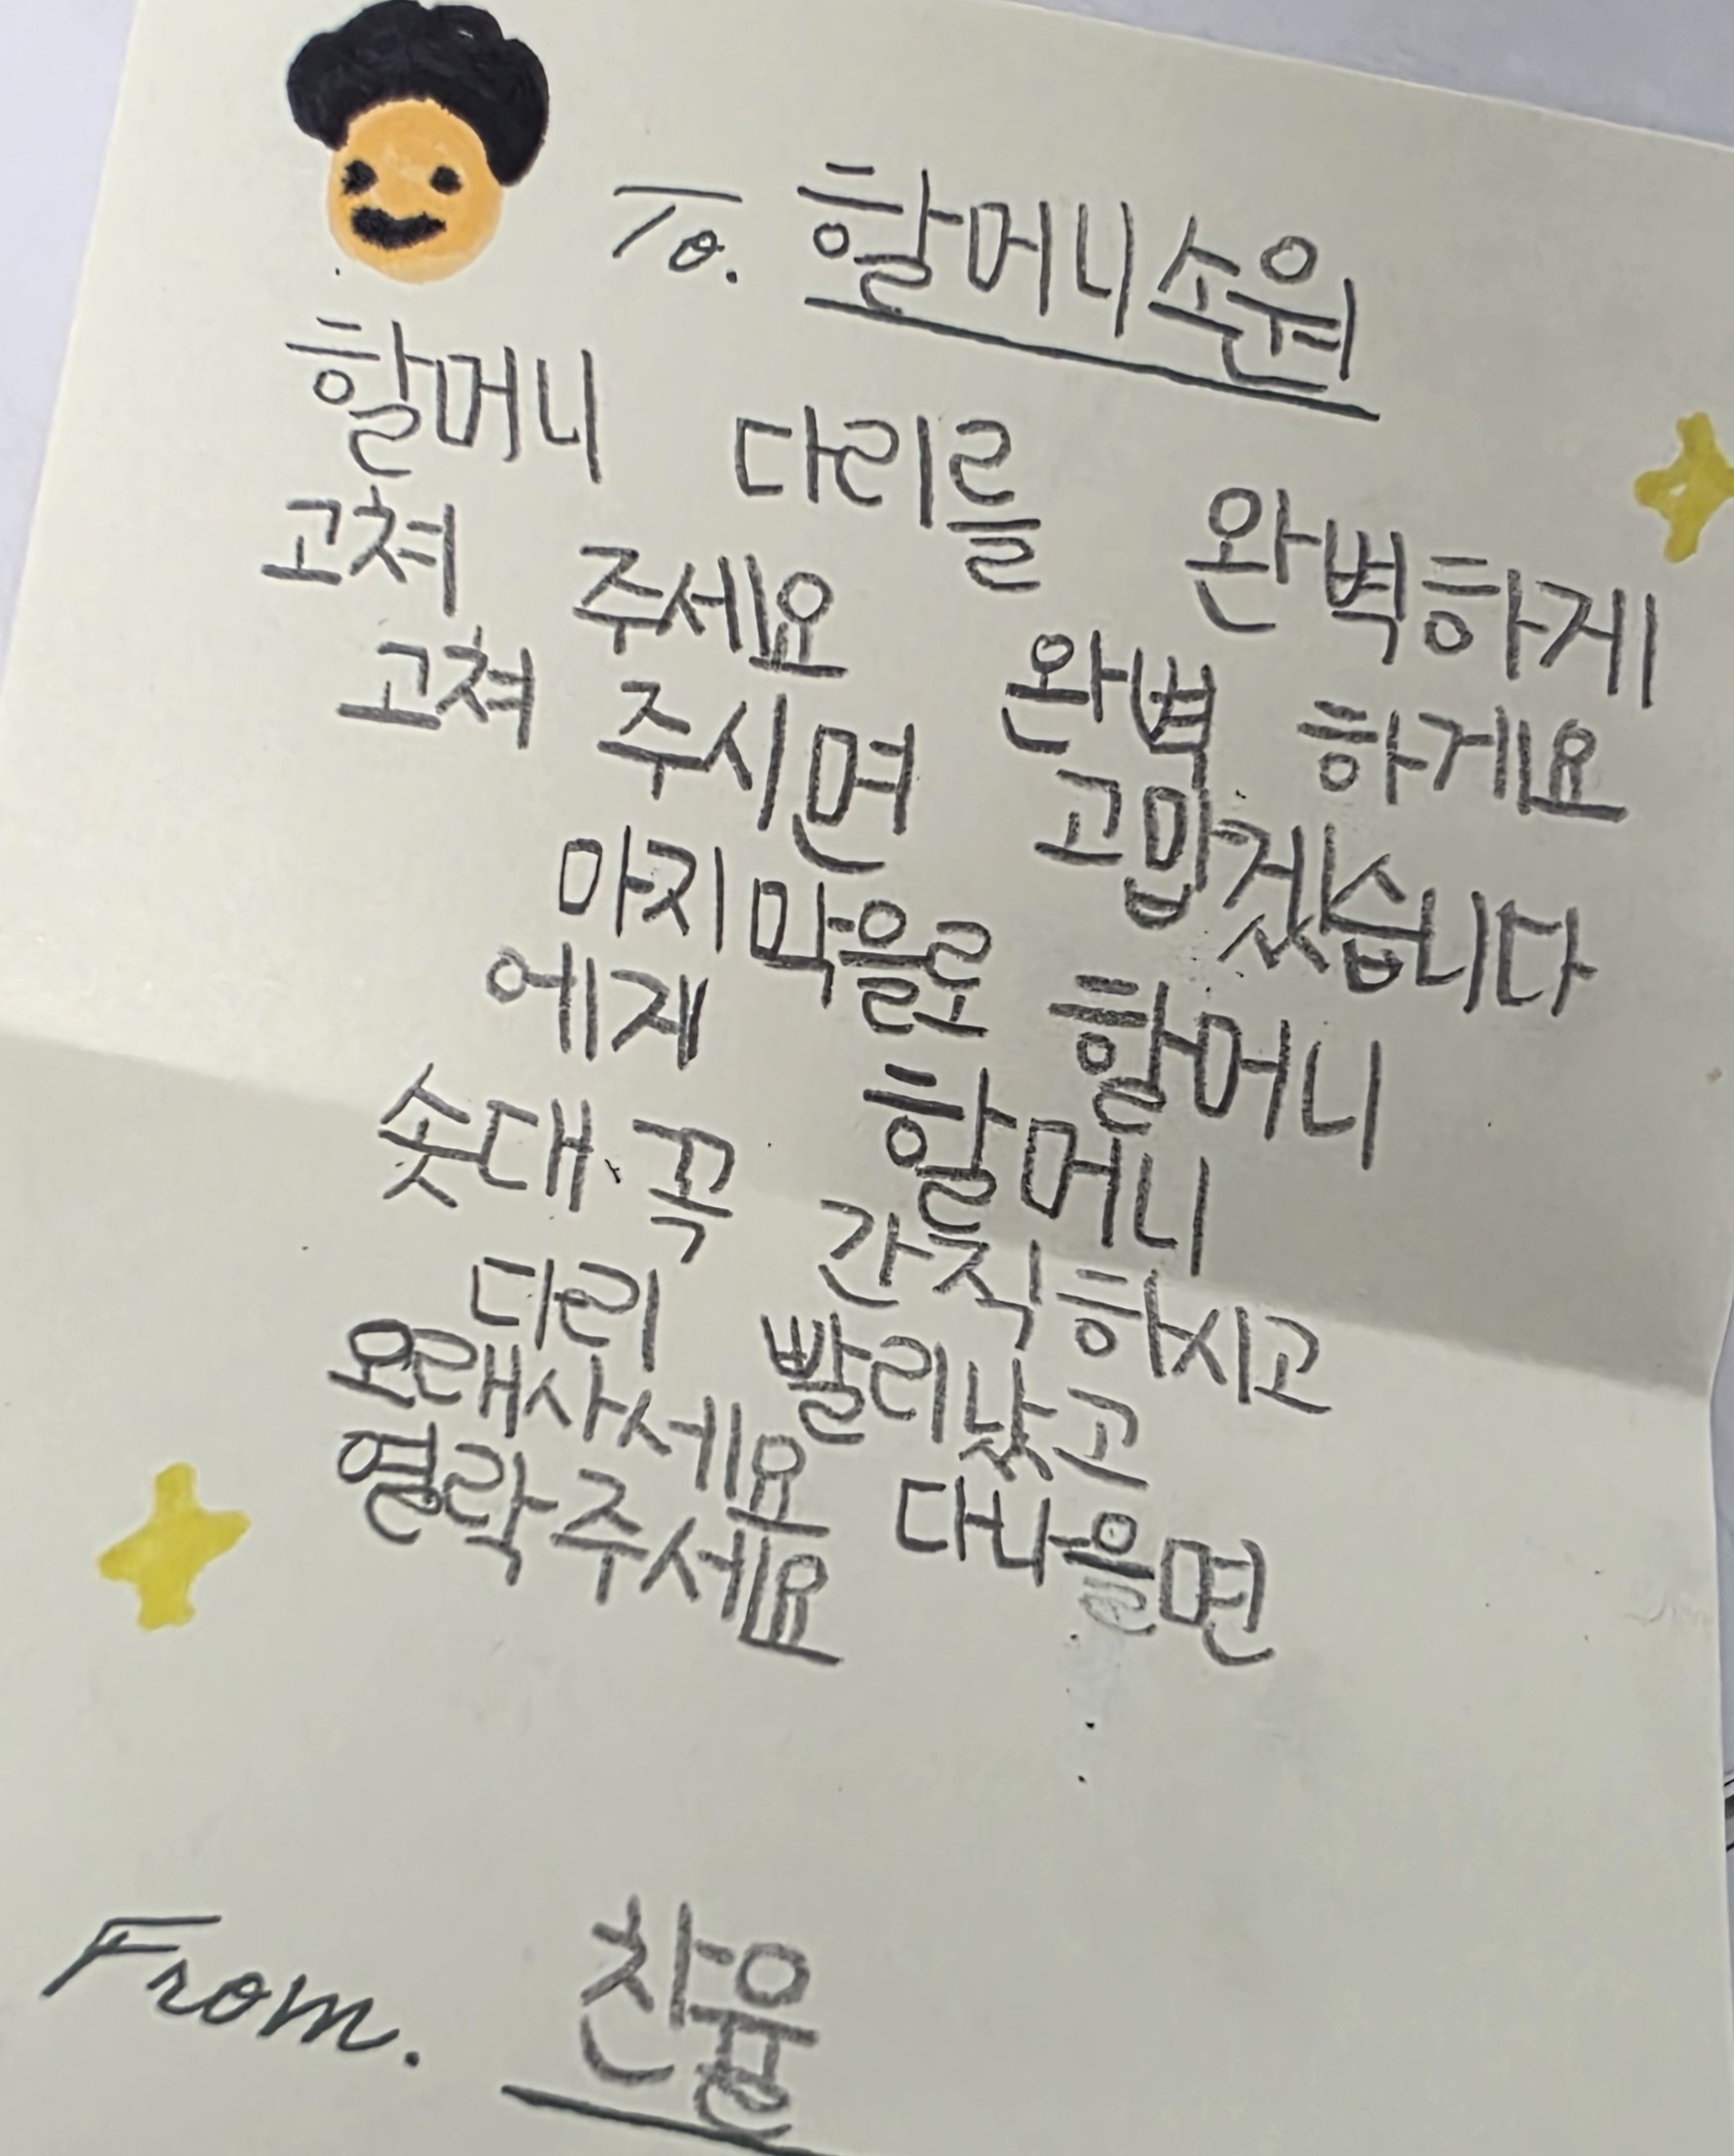 To. 할머니소원
할머니 다리를 완벽하게
고쳐 주세요 완벽 하게요
고쳐 주시면 고맙겠습니다
마지막을로 할머니
에게 할머니
솟대 꼭 간직하시고
다리 빨리낳고
오래사세요 다나을면
열락주세요
From. 찬율